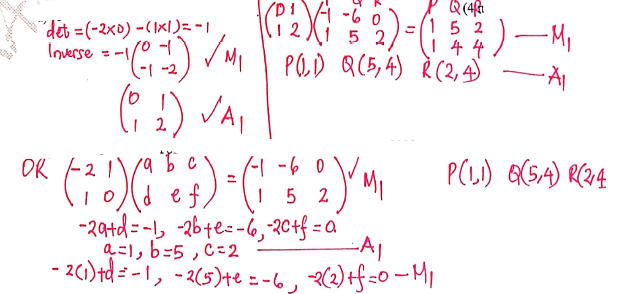 det = (-2x0) - (1x1) = -1
Inverse = -1 (0 -1
-1 -2) ✓ M1
(0 1
1 2) ✓ A1
P Q (4
(0 1
1 2) (-1 -6 0
1 5 2) = (1 5 2
1 4 4) — M1
P(1,1) Q(5,4) R(2,4) — A1
OR (-2 1
1 0) (a b c
d e f) = (-1 -6 0
1 5 2) ✓ M1
P(1,1) Q(5,4) R(2,4
-2a+d=-1, -2b+e=-6, -2c+f=0
a=1, b=5, c=2 — A1
-2(1)+d=-1, -2(5)+e=-6, -2(2)+f=0 — M1